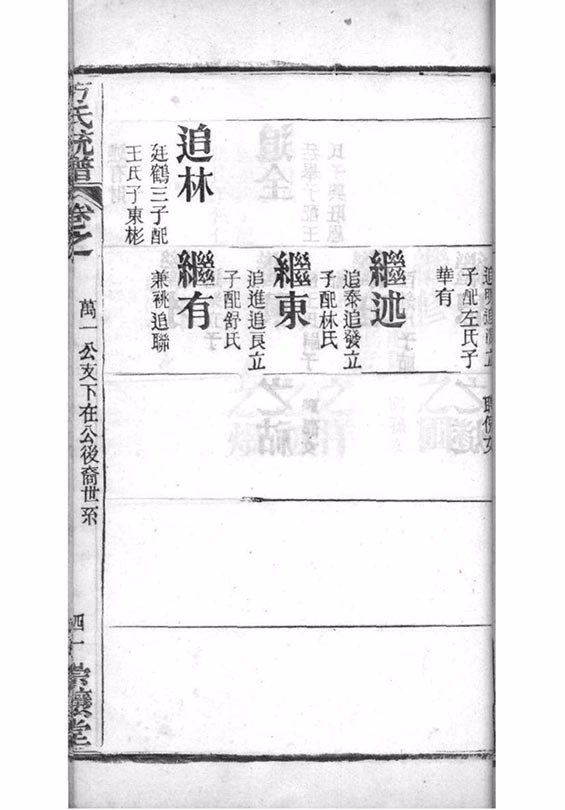 追林
廷鶴三子配
王氏子東彬
追明追立
子配左氏子
華有
繼述
追泰追發立
子配林氏
繼東
追進追良立
子配舒氏
繼有
兼祧追聯
方氏統譜
卷之
萬一公支下在公後裔世系
四十
崇讓堂